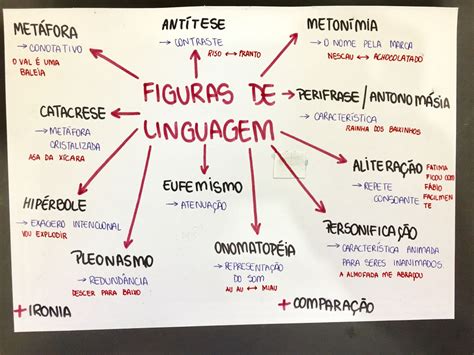 METÁFORA
→ CONOTATIVO
O VAL É UMA
BALEIA
ANTÍTESE
→ CONTRASTE
RISO ↔ PRANTO
METONÍMIA
→ O NOME PELA MARCA
NESCAU ↔ ACHOCOLATADO
FIGURAS DE
LINGUAGEM
CATACRESE
→ METÁFORA
CRISTALIZADA
ASA DA XÍCARA
PERÍFRASE/ANTONOMÁSIA
→ CARACTERÍSTICA
RAINHA DOS BAIXINHOS
HIPÉRBOLE
→ EXAGERO INTENCIONAL
VOU EXPLODIR
EUFEMISMO
→ ATENUAÇÃO
ALITERAÇÃO
→ REPETE
CONSOANTE
FATIMA
FICOU COM
FÁBIO
FACILMEN
TE
PLEONASMO
→ REDUNDÂNCIA
DESCER PARA BAIXO
ONOMATOPÉIA
→ REPRESENTAÇÃO
DO SOM
AU AU ↔ MIAU
PERSONIFICAÇÃO
→ CARACTERÍSTICA ANIMADA
PARA SERES INANIMADOS.
A ALMOFADA ME ABRAÇOU
+ IRONIA
+ COMPARAÇÃO